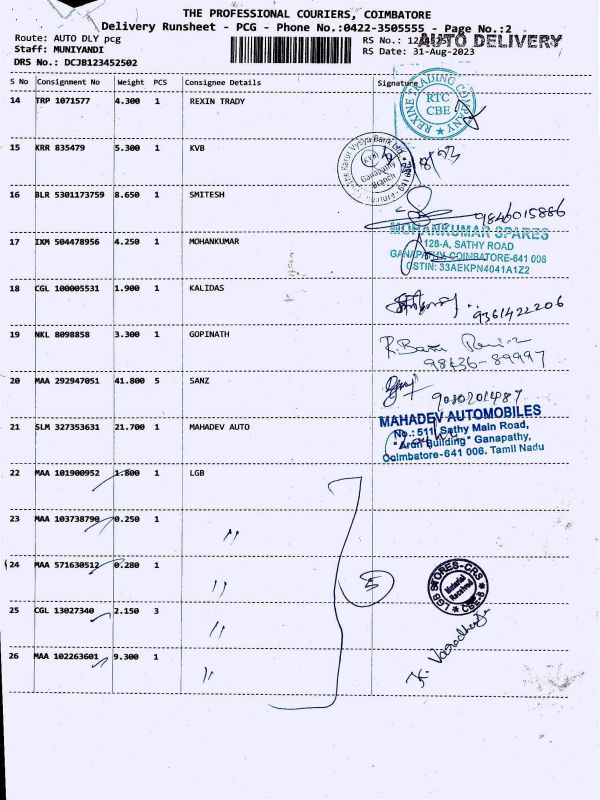 THE PROFESSIONAL COURIERS, COIMBATORE
Delivery Runsheet - PCG - Phone No.:0422-3505555 - Page No.:2
Route: AUTO DLY pcg
RS No.:
AUTO DELIVERY
Staff: MUNIYANDI
RS Date: 31-Aug-2023
DRS No.: DCJB123452502
S No Consignment No Weight PCS Consignee Details Signature
14 TRP 1071577 4.300 1 REXIN TRADY
REXINE TRADING COMPANY
RTC
CBE
15 KRR 835479 5.300 1 KVB
Karur Vysya Bank Ltd
Ganapathy
Branch
16 BLR 5301173759 8.650 1 SMITESH
9846015886
17 IXM 504478956 4.250 1 MOHANKUMAR
MOHANKUMAR SPARES
128-A, SATHY ROAD
GANAPATHY, COIMBATORE-641 006
GSTIN: 33AEKPN4041A1Z2
18 CGL 100005531 1.900 1 KALIDAS
9361422206
19 NKL 8098858 3.300 1 GOPINATH
98436-89997
20 MAA 292947051 41.800 5 SANZ
9080201487
21 SLM 327353631 21.700 1 MAHADEV AUTO
MAHADEV AUTOMOBILES
No.: 511, Sathy Main Road,
"Arun Building" Ganapathy,
Coimbatore-641 006. Tamil Nadu
22 MAA 101900952 1.800 1 LGB
23 MAA 103738790 0.250 1 "
24 MAA 571630512 0.280 1 "
5
LGB STORES-CRS
Material
Received
CBE-6
25 CGL 13027340 2.150 3 "
26 MAA 102263601 9.300 1 "